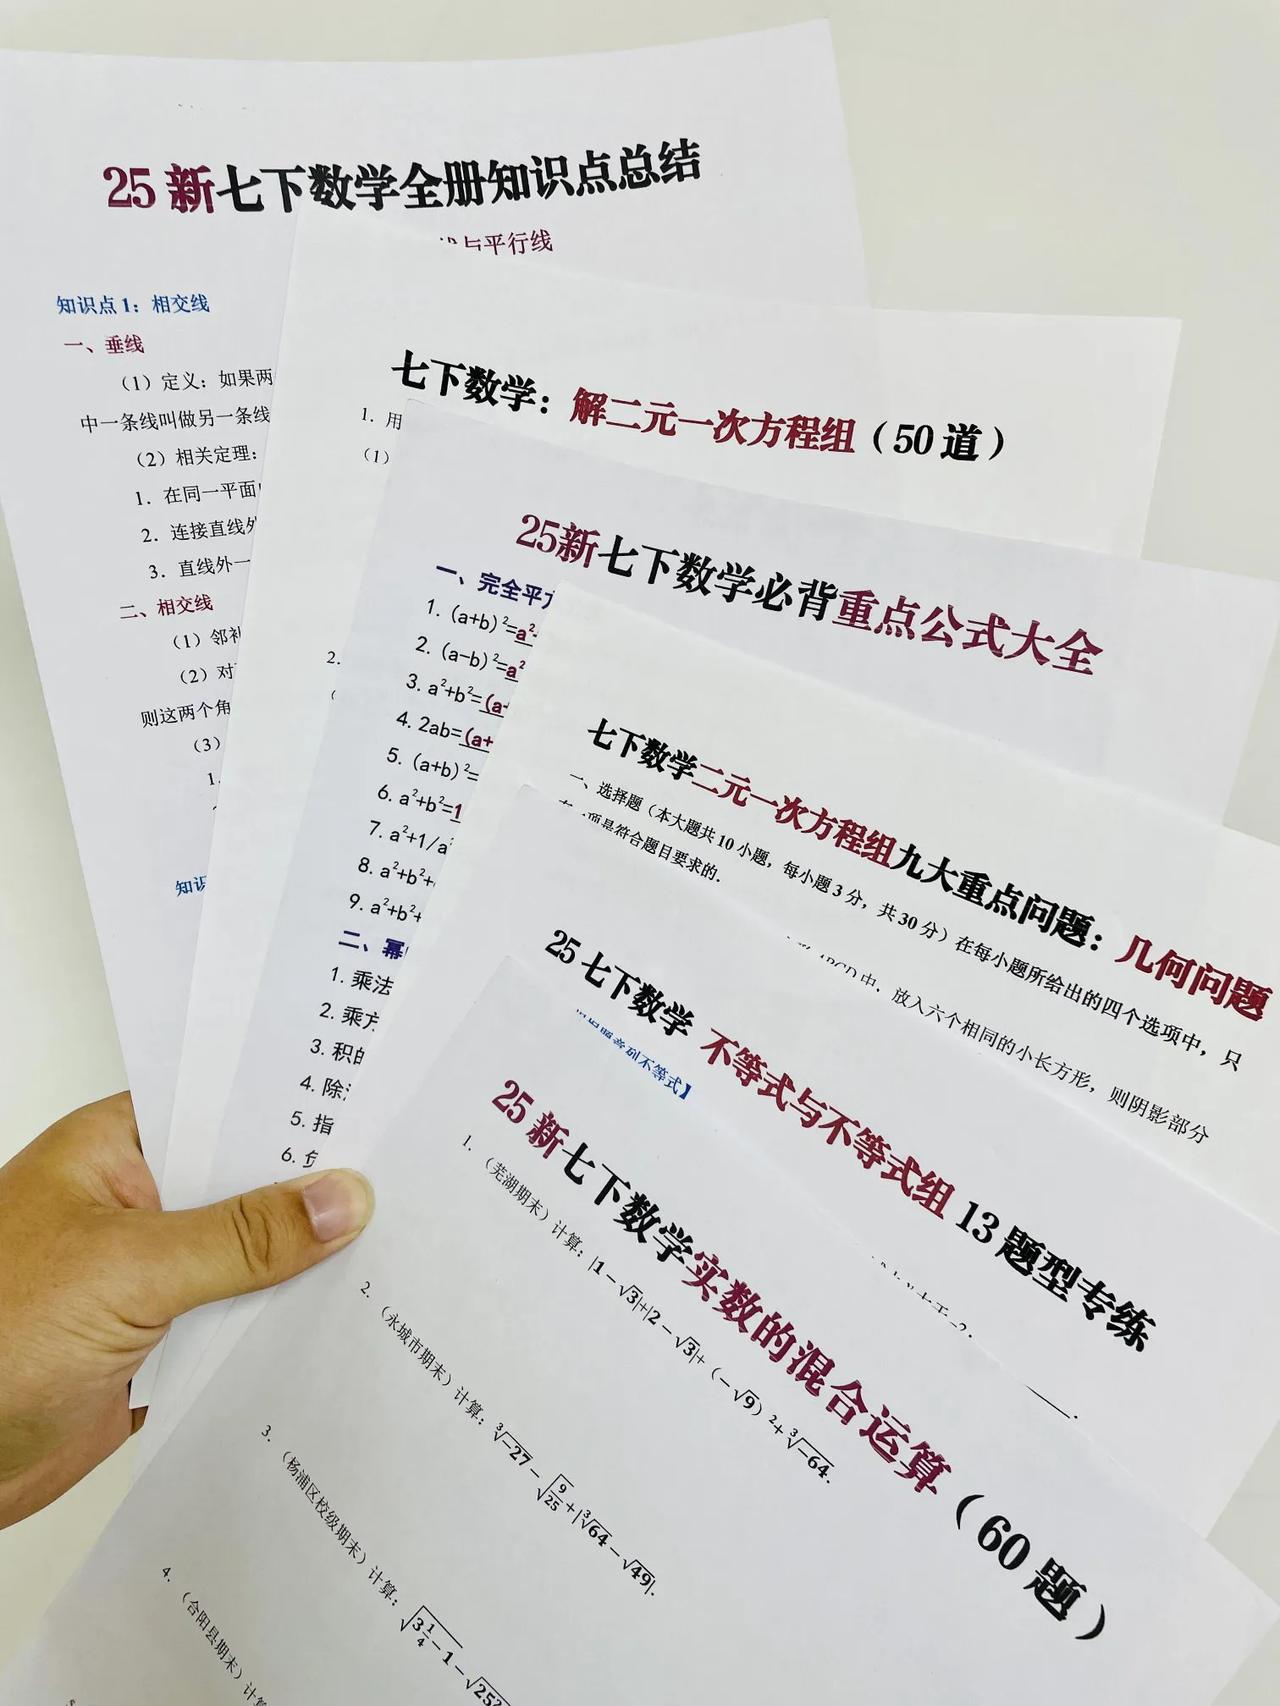 25 新七下数学全册知识点总结
与平行线
知识点 1：相交线
一、垂线
（1）定义：如果两
中一条线叫做另一条线
（2）相关定理：
1．在同一平面
2．连接直线外
3．直线外一
二、相交线
（1）邻补
（2）对
则这两个角
（3）
1.
知识
七下数学：解二元一次方程组（50 道）
1. 用
（1）
2.
25新七下数学必背重点公式大全
一、完全平方
1. (a+b)²=a²
2. (a-b)²=a²
3. a²+b²=(a
4. 2ab=(a+
5. (a+b)²=
6. a²+b²=1
7. a²+1/a²
8. a²+b²+
9. a²+b²+
二、幂
1. 乘法
2. 乘方
3. 积的
4. 除法
5. 指
6. 负
七下数学二元一次方程组九大重点问题：几何问题
一、选择题（本大题共 10 小题，每小题 3 分，共 30 分）在每小题所给出的四个选项中，只
有一项是符合题目要求的.
ABCD 中，放入六个相同的小长方形，则阴影部分
25 七下数学 不等式与不等式组 13 题型专练
不等式】
25 新七下数学实数的混合运算（60 题）
1. （芜湖期末）计算：|1－√3|+|2－√3|+（－√9）²+∛-64.
2. （永城市期末）计算：∛-27－√(9/25)+|∛64－√49|.
3. （杨浦区校级期末）计算：√(3 1/4－1)－√25²
4. （合阳县期末）计算